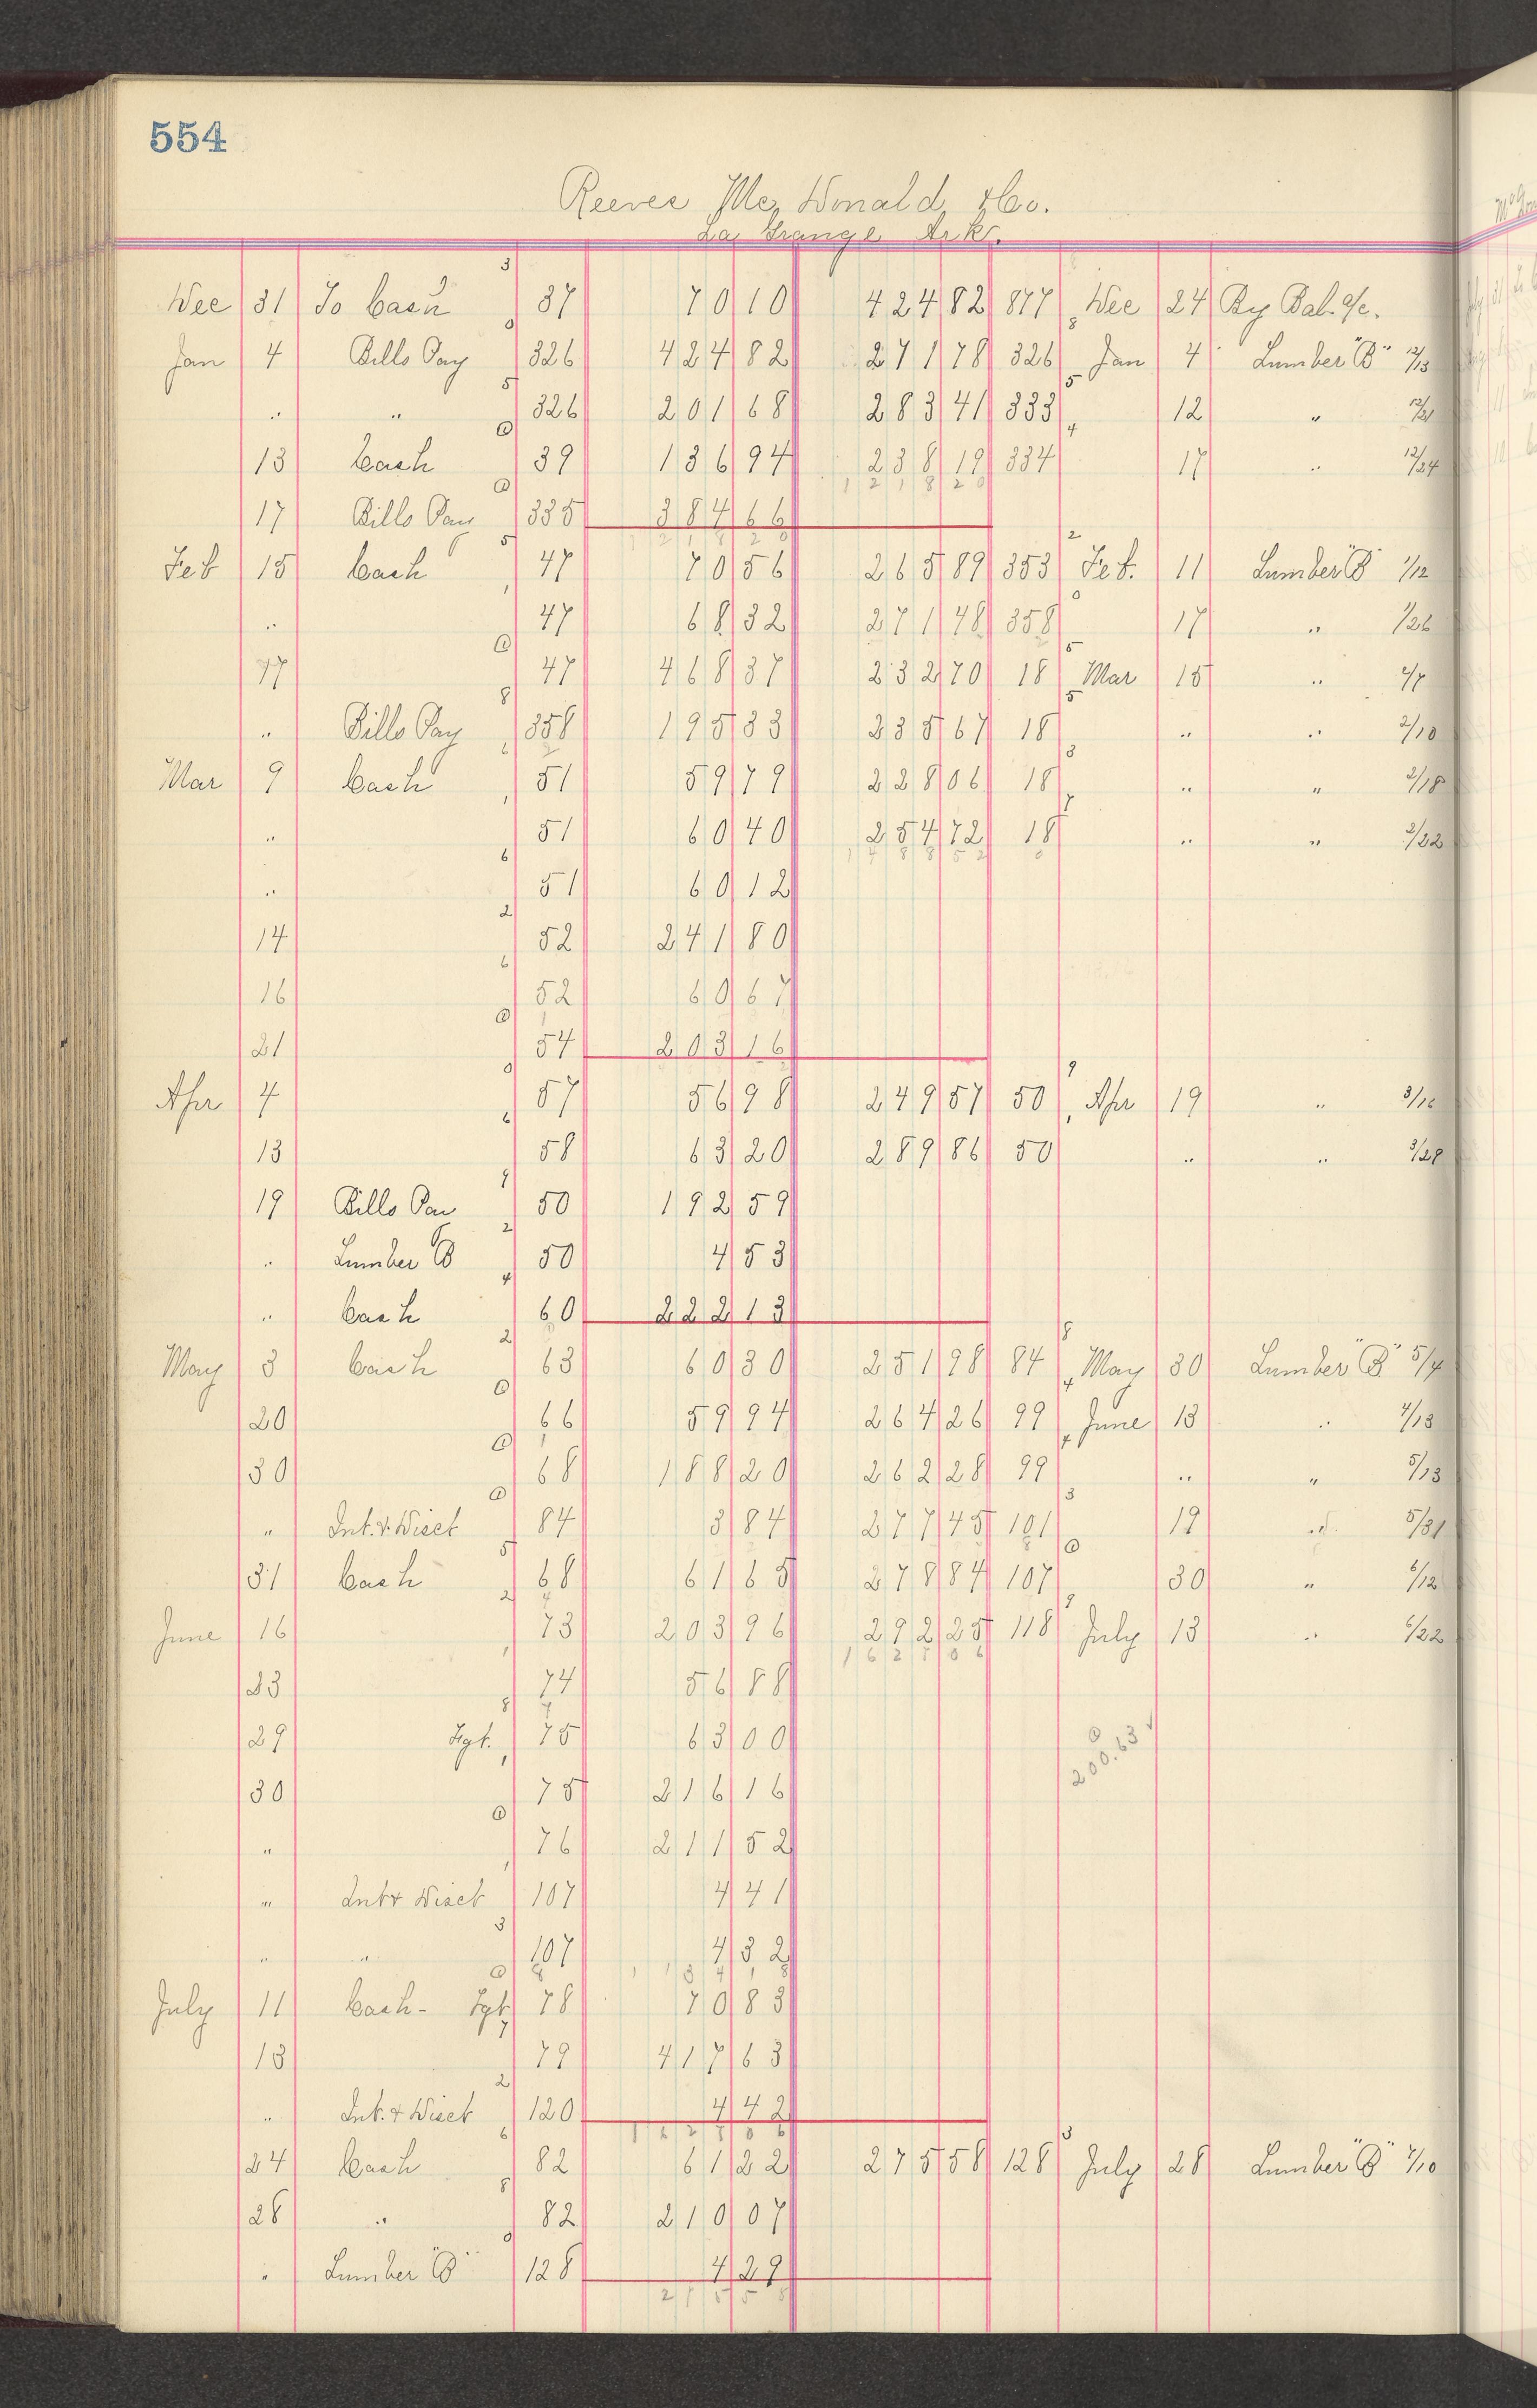 554
Reeves Mc Donald & Co.
La Grange Arks.
Dec 31 To Cash 37 70 10 424 82 877 Dec 24 By Bal. a/c.
Jan 4 Bills Pay 326 424 82 271 78 326 Jan 4 Lumber "B" 12/13
" " 326 201 68 283 41 333 12 " 12/21
13 Cash 39 136 94 238 19 334 17 " 12/24
1 2 1 8 2 0
17 Bills Pay 335 384 66
1 2 1 8 2 0
Feb 15 Cash 47 70 56 265 89 353 Feb. 11 Lumber "B" 1/12
" 47 68 32 271 48 358 17 " 1/26
17 47 468 37 232 70 18 Mar 15 " 2/7
" Bills Pay 358 195 33 235 67 18 " " 2/10
Mar 9 Cash 51 59 79 228 06 18 " " 2/18
" 51 60 40 254 72 18 " " 2/22
1 4 8 8 5 2
" 51 60 12
14 52 241 80
16 52 60 67
21 54 203 16
Apr 4 57 56 98 249 57 50 Apr 19 " 3/16
13 58 63 20 289 86 50 " " 3/28
19 Bills Pay 50 192 59
" Lumber B 50 4 53
" Cash 60 222 13
May 3 Cash 63 60 30 251 98 84 May 30 Lumber "B" 5/7
20 66 59 94 264 26 99 June 13 " 4/13
30 68 188 20 262 28 99 " " 5/13
" Int. & Disct 84 3 84 277 45 101 19 " 5/31
31 Cash 68 61 65 278 84 107 30 " 6/12
June 16 73 203 96 292 25 118 July 13 " 6/22
1 6 2 7 0 6
23 74 56 88
29 Fgt. 75 63 00
200.63
30 75 216 16
" 76 211 52
" Int & Disct 107 4 41
" " 107 4 32
July 11 Cash - Fgt 78 70 83
13 79 417 63
" Int. & Disct 120 4 42
1 6 2 7 0 6
24 Cash 82 61 22 275 58 128 July 28 Lumber "B" 7/10
28 " 82 210 07
" Lumber "B" 128 4 29
2 7 5 5 8